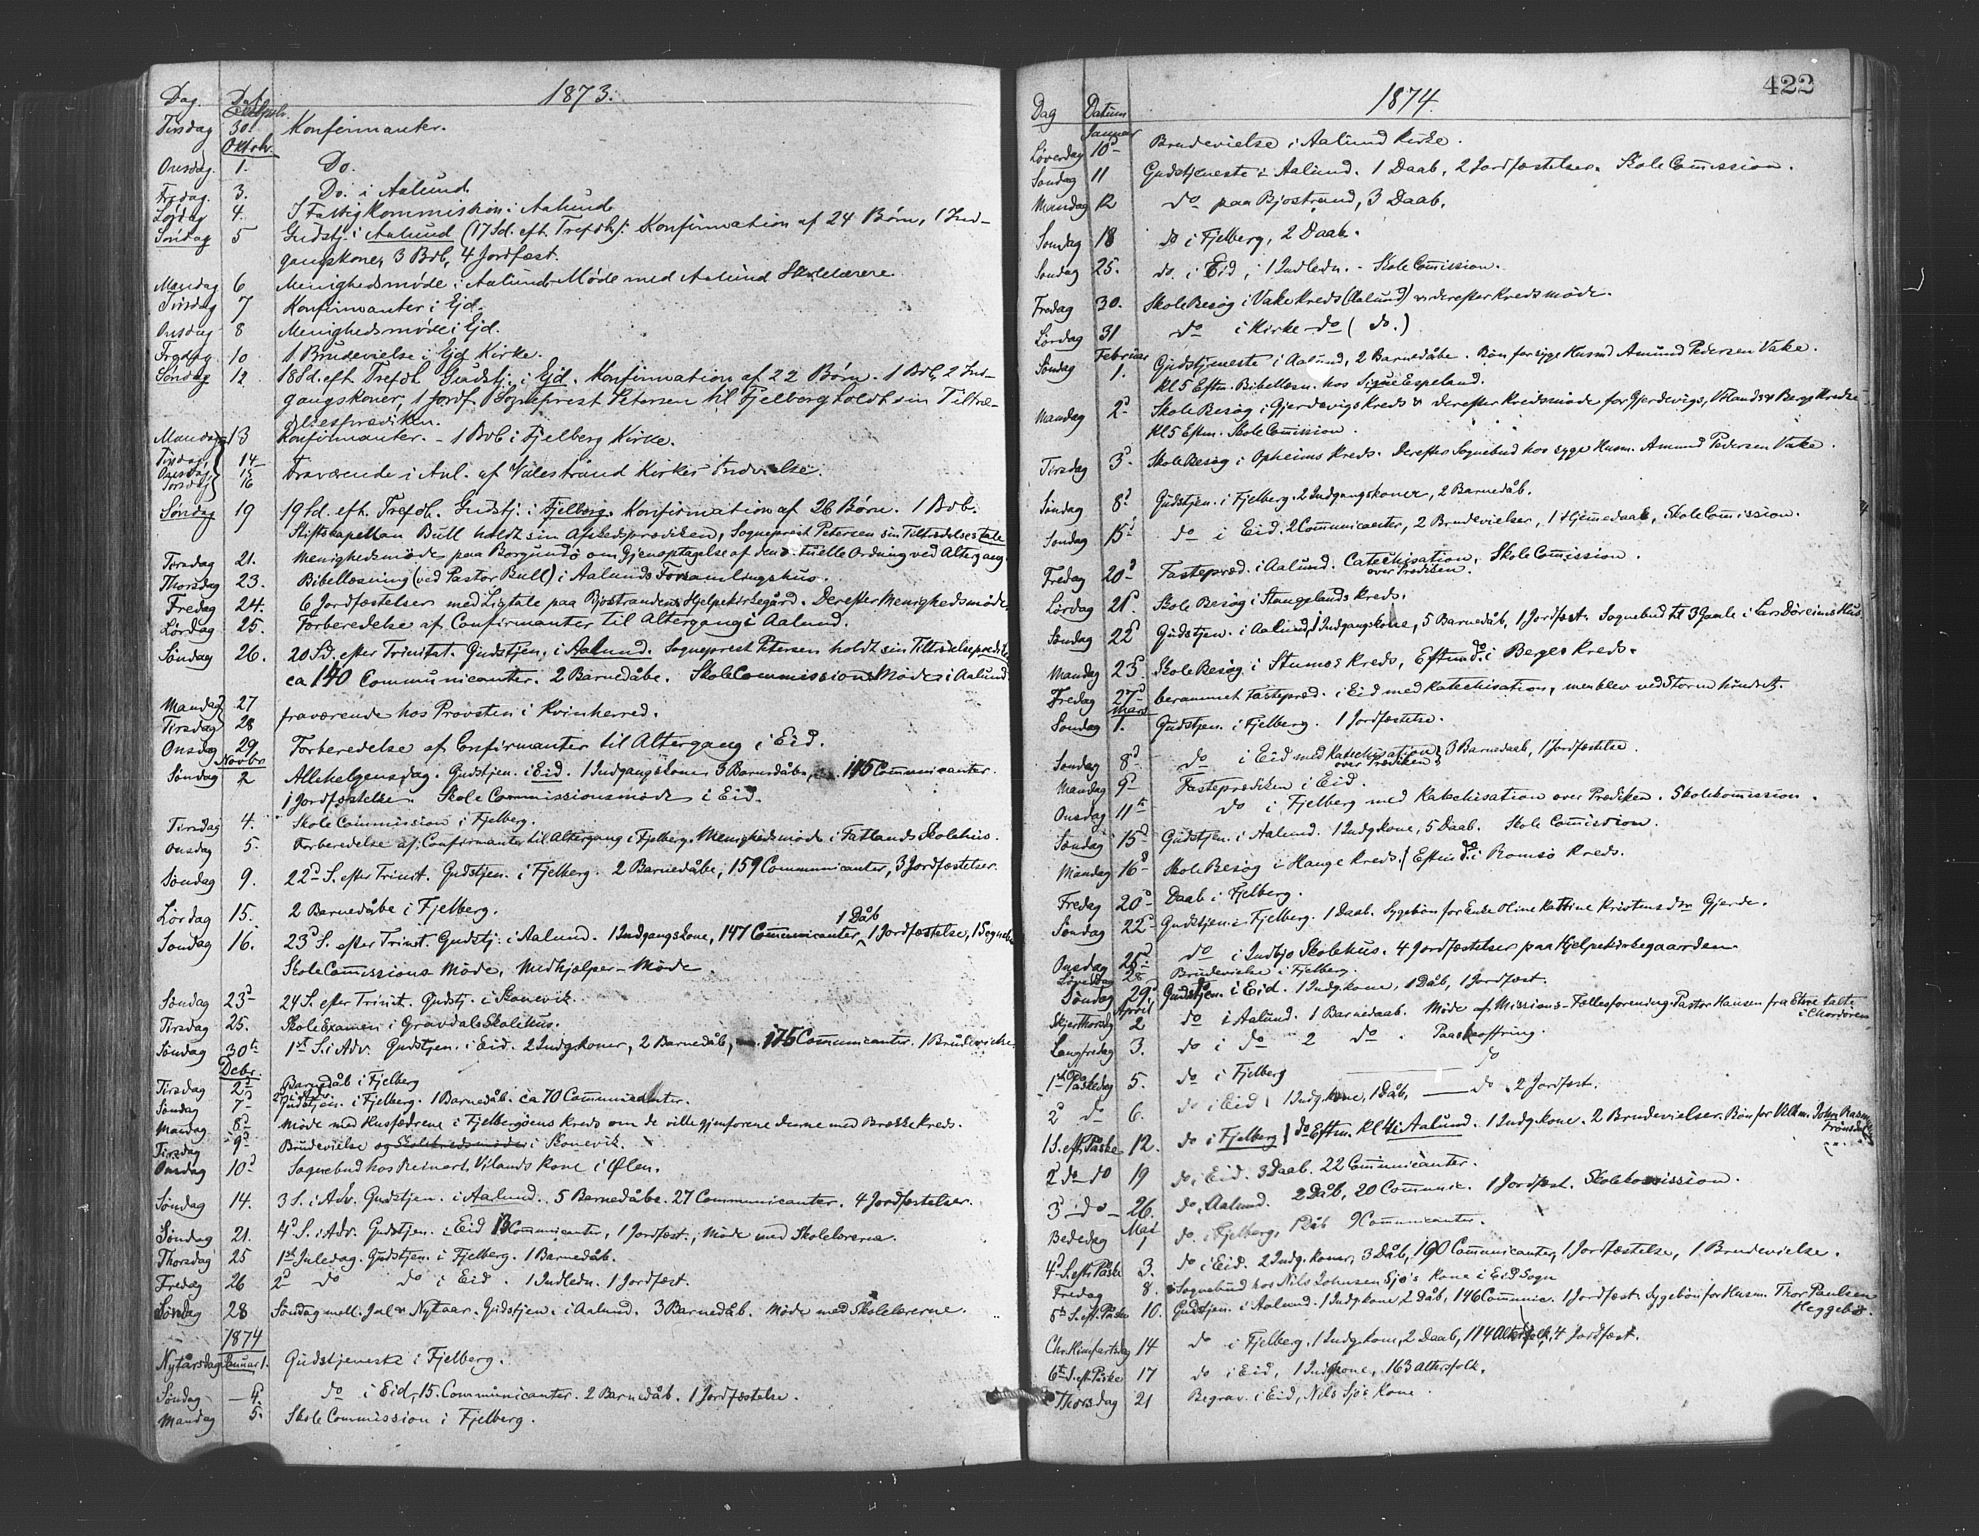 1873.
Dag. Dat.
Septbr.
Tirsdag 30. Konfirmanter.
Oktobr.
Onsdag 1. Do.
Fredag. 3. Do. i Aalund
Lørdag 4. Fattigkommission i Aalund
Søndag 5 Gudstj. i Aalund (17 Sd. eft. Trefdh.) Konfirmation af 24 Børn, 1 Ind-
gangskone, 3 Bdb, 4 Jordfæst.
Mandag 6 Menighedsmøde i Aalund. Møde med Aalund Skolelærere
Tirsdag 7 Konfirmanter i Ejd.
Onsdag 8 Menighedsmøde i Ejd.
Fredag 10 1 Brudevielse i Ejd Kirke.
Søndag 12 18 Sd. eft. Trefdh. Gudstj. i Ejd. Konfirmation af 22 Børn. 1 Bdb, 2 Ind-
gangskoner, 1 Jordf. Sogneprest Petersen til Fjelberg holdt sin Tiltræ-
delsesprædiken.
Mandag 13 Konfirmanter. - 1 Bdb i Fjelberg Kirke.
Tirsdag 14
Onsdag 15 fraværende i Anl. af Valestrand Kirkes Indvielse.
Torsdag 16
Søndag 19 19 Sd. eft. Trefdh. Gudstj. i Fjelberg. Konfirmation af 26 Børn. 1 Bdb.
Stiftskapellan Bull holdt sin Afskedsprædiken, Sogneprest Petersen sin Tiltrædelsestale
Tirsdag 21. Menighedsmøde paa Borgundø om Gjenoptagelse af den rituelle Ordning ved Altergang
Thorsdag 23. Bibellæsning (ved Pastor Bull) i Aalunds Forsamlingshus.
Fredag 24. 6 Jordfæstelser med Ligtale paa Bjostrandens Hjelpekirkegård. Derefter Menighedsmøde
Lørdag 25. Forberedelse af Confirmanter til Altergang i Aalund.
Søndag 26. 20 Sd. efter Trinitat. Gudstjen. i Aalund. Sogneprest Petersen holdt sin Tiltrædelsespræd.
ca 140 Communicanter. 2 Barnedåbe. SkoleCommissions Møde i Aalund.
Mandag 27
Tirsdag 28 fraværende hos Provsten i Kvinherred.
Onsdag 29 Forberedelse af Confirmanter til Altergang i Eid.
Novbr
Søndag 2 Allehelgensdag. Gudstjen. i Eid. 1 Indgangskone 3 Barnedåbe, 115 Communicanter.
1 Jordfæstelse. SkoleCommissionsmøde i Eid.
Tirsdag 4. SkoleCommission i Fjelberg.
Onsdag 5. Forberedelse af Confirmanter til Altergang i Fjelberg. Menighedsmøde i Fatlands Skolehus.
Søndag 9. 22d S. efter Trinit. Gudstjen. i Fjelberg. 2 Barnedåbe, 159 Communicanter, 3 Jordfæstelser.
Lørdag 15. 2 Barnedåbe i Fjelberg.
1 Dåb
Søndag 16. 23d S. efter Trinit. Gudstj. i Aalund. 1 Indgangskone, 147 Communicanter, 1 Jordfæstelse,
SkoleCommissions Møde, Medhjælper-Møde.
Søndag 23d 24 S. efter Trinit. Gudstj. i Skonevik.
Tirsdag 25. SkoleExamen i Gravdals Skolehus.
Søndag 30te 1st S. i Adv. Gudstjen. i Eid. 2 Indgkoner, 2 Barnedåb, 175 Communicanter. 1 Brudevielse
Debr.
Tirsdag 2d Barnedåb i Fjelberg
Søndag 7d Gudstjen. i Fjelberg. 1 Barnedåb. ca 70 Communicanter.
Mandag 8d Møde med Husfædrene i Fjelbergøens Kreds om de ville gjenforene denne med Brække kreds.
Tirsdag 9d Brudevielse og Skolekredsmøder i Skonevik.
Onsdag 10d Sognebud hos Reinert Vilands kone i Ølen.
Søndag 14. 3 S. i Adv. Gudstjen. i Aalund. 5 Barnedåbe. 27 Communicanter. 4 Jordfæstelser.
Søndag 21. 4d S. i Adv. Gudstjen. i Eid 13 Communicanter, 1 Jordfæst., Møde med Skolelærerne.
Thorsdag 25 1ste Juledag. Gudstjen. i Fjelberg. 1 Barnedåb.
Fredag 26 2d do do i Eid. 1 Indledn. 1 Jordfæst.
Søndag 28 Søndag mell. Jul & Nytaar. Gudstjen. i Aalund. 3 Barnedåb. Møde med Skolelærerne.
1874
Nytårsdag Januar 1. Gudstjeneste i Fjelberg.
Søndag - 4. do i Eid, 15 Communicanter. 2 Barnedåb. 1 Jordfæstelse.
Mandag 5. SkoleCommission i Fjelberg.
422
1874
Dag Datum
Januar
Løverdag 10d Brudevielse i Aalund Kirke.
Søndag 11 Gudstjeneste i Aalund. 1 Daab, 2 Jordfæstelser. Skole Comission.
Mandag 12 do paa Bjostrand, 3 Daab.
Søndag 18 do i Fjelberg, 2 Daab.
Søndag 25. do i Eid, 1 Indledn. - Skole Comission.
Fredag 30. Skole Besøg i Vake Kreds (Aalund) & derefter Kredsmøde.
Lørdag 31 do i Kirke - do ( do. )
Februar
Søndag 1. Gudstjeneste i Aalund, 2 Barnedåbe. Bøn for syge Husmd Amund Pedersen Vake.
Kl 5 Eftm. Bibellæsn. hos Signe Espeland.
Mandag 2d Skole Besøg i Gjerdevigs Kreds & derefter Kredsmøde for Gjerdevigs, Ølands & Bergs Kredse
Kl 5 Eftm. Skole Comission.
Tirsdag 3d Skole Besøg i Opheims Kreds. Derefter Sognebud hos syge Husm. Amund Pedersen Vake.
Søndag 8d Gudstjen. i Fjelberg. 2 Indgangskoner, 2 Barnedåb.
Søndag 15d do i Eid. 2 Communicanter, 2 Brudevielser, 1 Hjemmedaab, Skole Comission.
Fredag 20d Fastepræd. i Aalund. Catechisation over Prædiken. Skole Comission.
Lørdag 21d Skole Besøg i Stangelands Kreds.
Søndag 22d Gudstjen. i Aalund, 1 Indgangskone, 5 Barnedåb, 1 Jordfæst. Sognebud til 3 Gamle i Lars Døreims Hus
Mandag 23d Skole Besøg i Stumos Kreds, Eftmd. do i Berges Kreds.
Fredag 27d berammet Fastepræd. i Eid med Katechisation, men blev ved Storm hindret.
Mars
Søndag 1. Gudstjen. i Fjelberg. 1 Jordfæstelse.
Søndag 8d do i Eid med Katechisation over Prædiken, 3 Barnedaab, 1 Jordfæstelse.
Mandag 9d Fasteprædiken i Eid.
Onsdag 11te do i Fjelberg med Katechisation over Prædiken. Skolekomission.
Søndag 15d Gudstjen. i Aalund. 1 Indgkone, 5 Daab. Skole Comission.
Mandag 16d Skole Besøg i Hauge Kreds. / Eftmd do i Romsø Kreds.
Fredag 20d Daab i Fjelberg.
Søndag 22d Gudstjen. i Fjelberg. 1 Daab. Sygebøn for Enke Oline Kathine Kristensdr Gjerde.
Onsdag 25d do i Indbjo Skolehus. 4 Jordfæstelser paa Hjelpekirkegaarden
Løverdag 28 Brudevielse i Fjelberg.
Søndag 29d Gudstjen. i Eid. 1 Indgkone, 1 Dåb, 1 Jordfæst.
April
Skjærthorsdg 2 do i Aalund. 1 Barnedaab. Møde af Missions-Fællesforening. Pastor Hansen fra Etne talte
i Chordøren
Langfredag 3. do i do 2 do. Paaskeoffring.
1st Påskedag 5. do i Fjelberg do
2d do 6. do i Eid 1 Indg.kone, 1 Dåb, do 2 Jordfæst.
1 S. eft. Påske 12. do i Fjelberg / do Eftm. Kl 4 i Aalund. 1 Indg.kone. 2 Brudevielser. Bøn for John Rasm
2d do do 19 do i Eid. 3 Daab. 22 Communicanter.
3 - do - 26. do, Aalund. 2 Dåb, 20 Communic. 1 Jordfæst. Skolekomission.
Mai
Bededag 1 do. Fjelberg, 1 Dåb 9 Communicanter.
4d S. eft. Påske 3. do i Eid. 2 Indg.koner, 3 Dåb, 190 Communicanter, 1 Jordfæstelse, 1 Brudevielse.
Fredag 8. Sognebud hos Nils Johnsen Sjø's Kone i Eid Sogn
5te S. eft. Påske 10. Gudstjen. i Aalund. 1 Indg.kone 2 Dåb, 146 Communic. 1 Jordfæst. Sygebøn for Husm. Thor Paulsen
Heggebø.
Chr. Himfartsdag 14 do i Fjelberg, 1 Indg.kone, 2 Daab, 114 Altersfolk, 4 Jordfæst.
6te S. eft. Påske 17 do i Eid, 1 Indgkone, 163 Altersfolk.
Thorsdag 21 Begrav. i Eid, Nils Sjø's Kone.